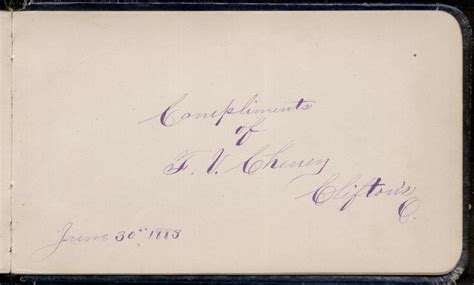 Compliments
of
F. V. Cheney
Clifton's
O.
June 30" 1883